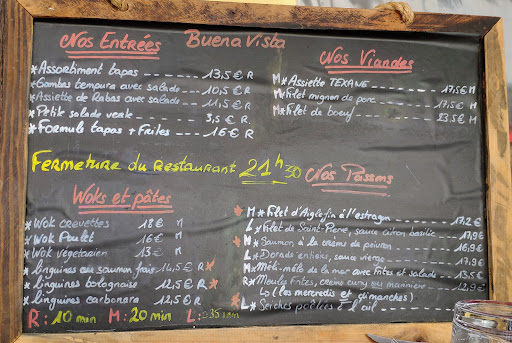 Nos Entrées
Buena Vista
*Assortiment tapas ---- 13,5€ R
*Gambas tempura avec salade ---- 10,5€ R
*Assiette de Rabas avec salade ---- 11,5€ R
* Petite salade verte ---- 3,5€ R
*Formule tapas + Frites ---- 16€ R
Nos Viandes
M*Assiette TEXANE ---- 17,5€ M
M*Filet mignon de porc ---- 17,5€ M
M*Filet de boeuf ---- 23,5€ M
Fermeture du Restaurant 21h30
Woks et pâtes
* Wok crevettes 18€ M
* Wok Poulet 16€ M
* Wok végétarien 13€ M
*linguines au saumon frais 14,5€ R *
*linguines bolognaise 12,5€ R *
*linguines carbonara 12,5€ R
R: 10 min M: 20 min L: 35 min
Nos Poissons
* M* Filet d'Aiglefin à l'estragon ---- 17,2€
L* Filet de Saint-Pierre, sauce citron basilic ---- 17,9€
* M* Saumon à la crème de poivron ---- 16,9€
L* Dorade entière, sauce vierge ---- 17,9€
M*Méli-mélo de la mer avec frites et salade ---- 13,5€
R*Moules frites, crème curry ou marinière ---- 12,9€
Lo (les mercredis et dimanches)
* L* Seiches poêlées à l'ail ----